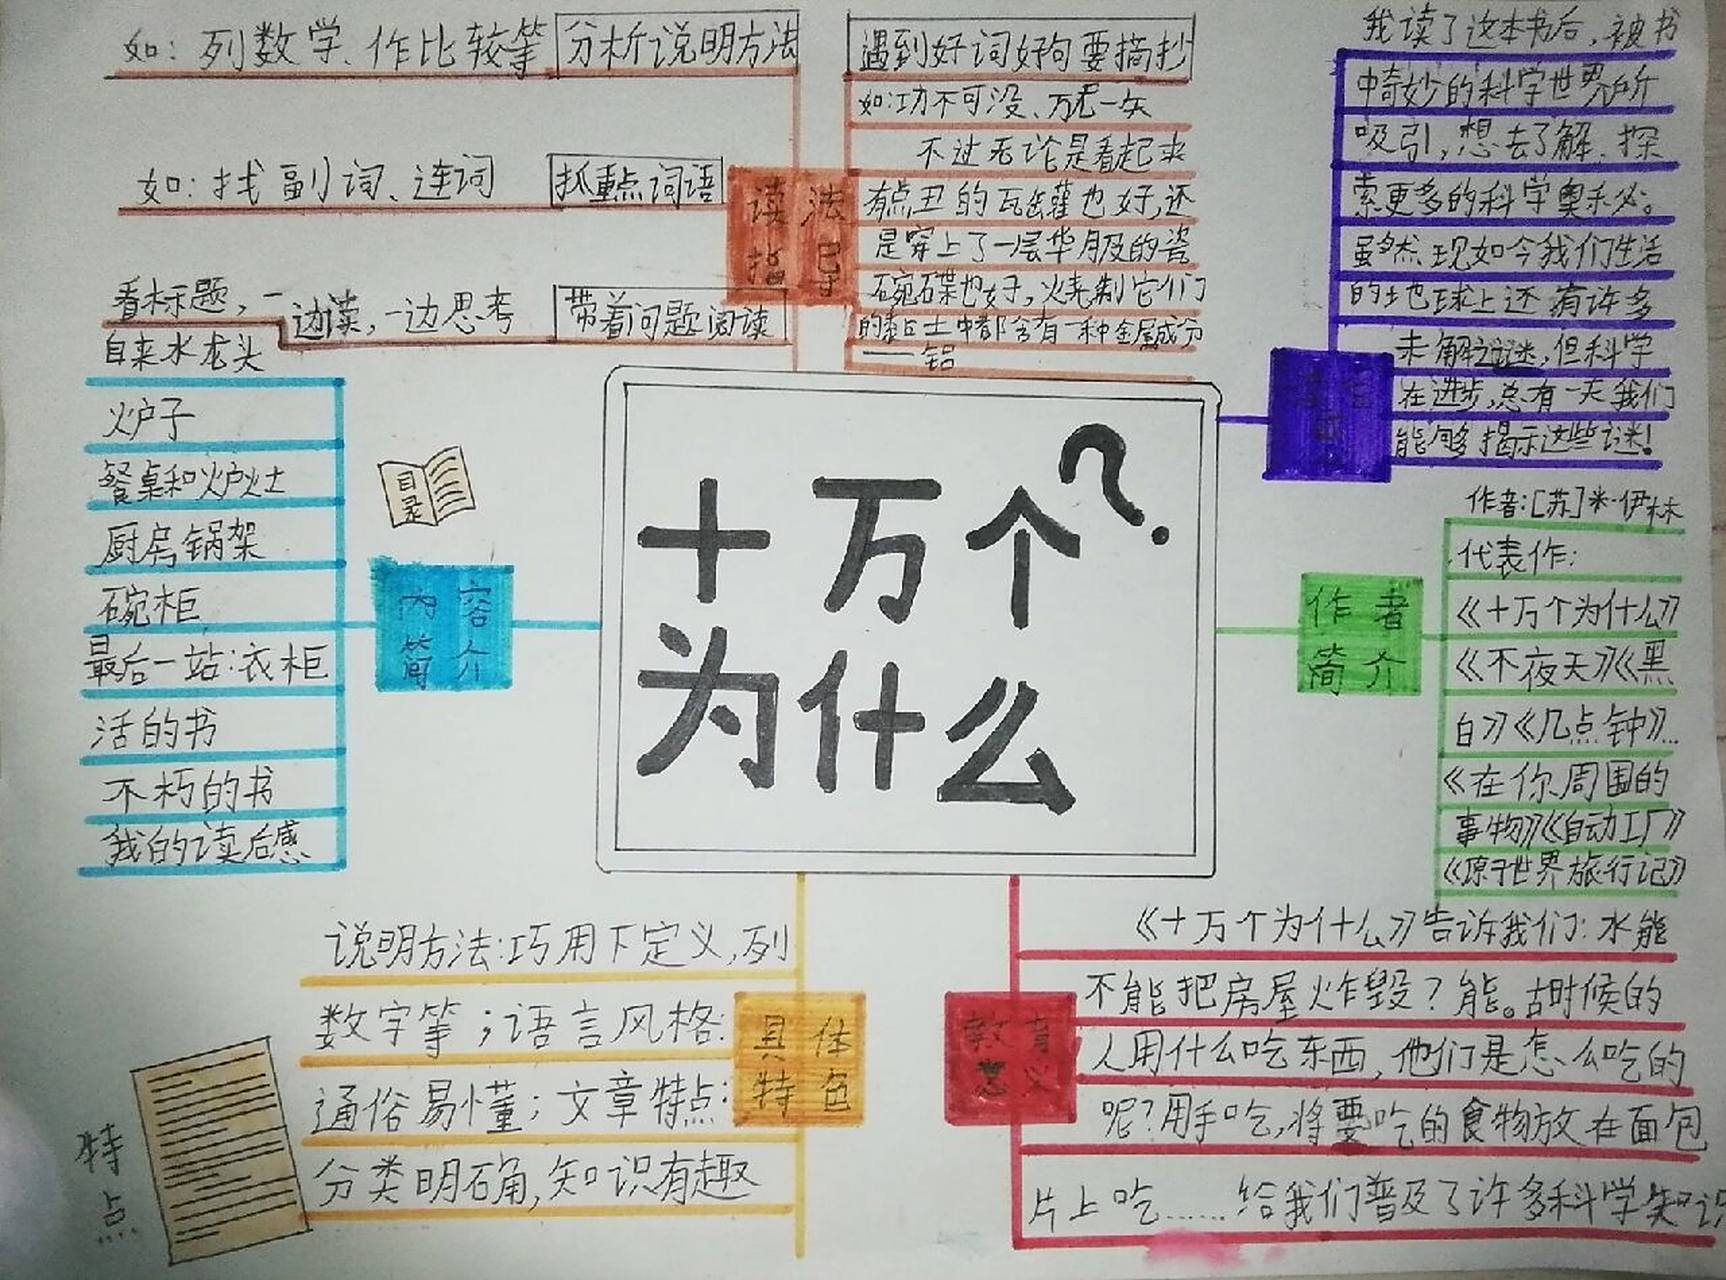 如：列数学、作比较等 分析说明方法
如：找副词、连词 抓重点词语
看标题，一边读，一边思考 带着问题阅读
读法
指导
遇到好词好句要摘抄
如:功不可没、万无一失
不过无论是看起来
有点丑的瓦罐也好,还
是穿上了一层华服的瓷
碗碟也好,火烧制它们
的黏土中都含有一种金属成分
——铝
我读了这本书后，被书
中奇妙的科学世界所
吸引，想去了解、探
索更多的科学奥秘。
虽然现如今我们生活
的地球上还有许多
未解之谜，但科学
在进步,总有一天我们
能够揭示这些谜！
自来水龙头
炉子
餐桌和炉灶
厨房锅架
碗柜
最后一站:衣柜
活的书
不朽的书
我的读后感
目录
内容
简介
十万个?
为什么
作者
简介
作者:[苏]米·伊林
代表作:
《十万个为什么》
《不夜天》《黑
白》《几点钟》...
《在你周围的
事物》《自动工厂》
《原子世界旅行记》
说明方法:巧用下定义,列
数字等；语言风格:
通俗易懂；文章特点:
分类明确,知识有趣
具体
特色
特点
教育
意义
《十万个为什么》告诉我们：水能
不能把房屋炸毁？能。古时候的
人用什么吃东西，他们是怎么吃的
呢？用手吃,将要吃的食物放在面包
片上吃......给我们普及了许多科学知识